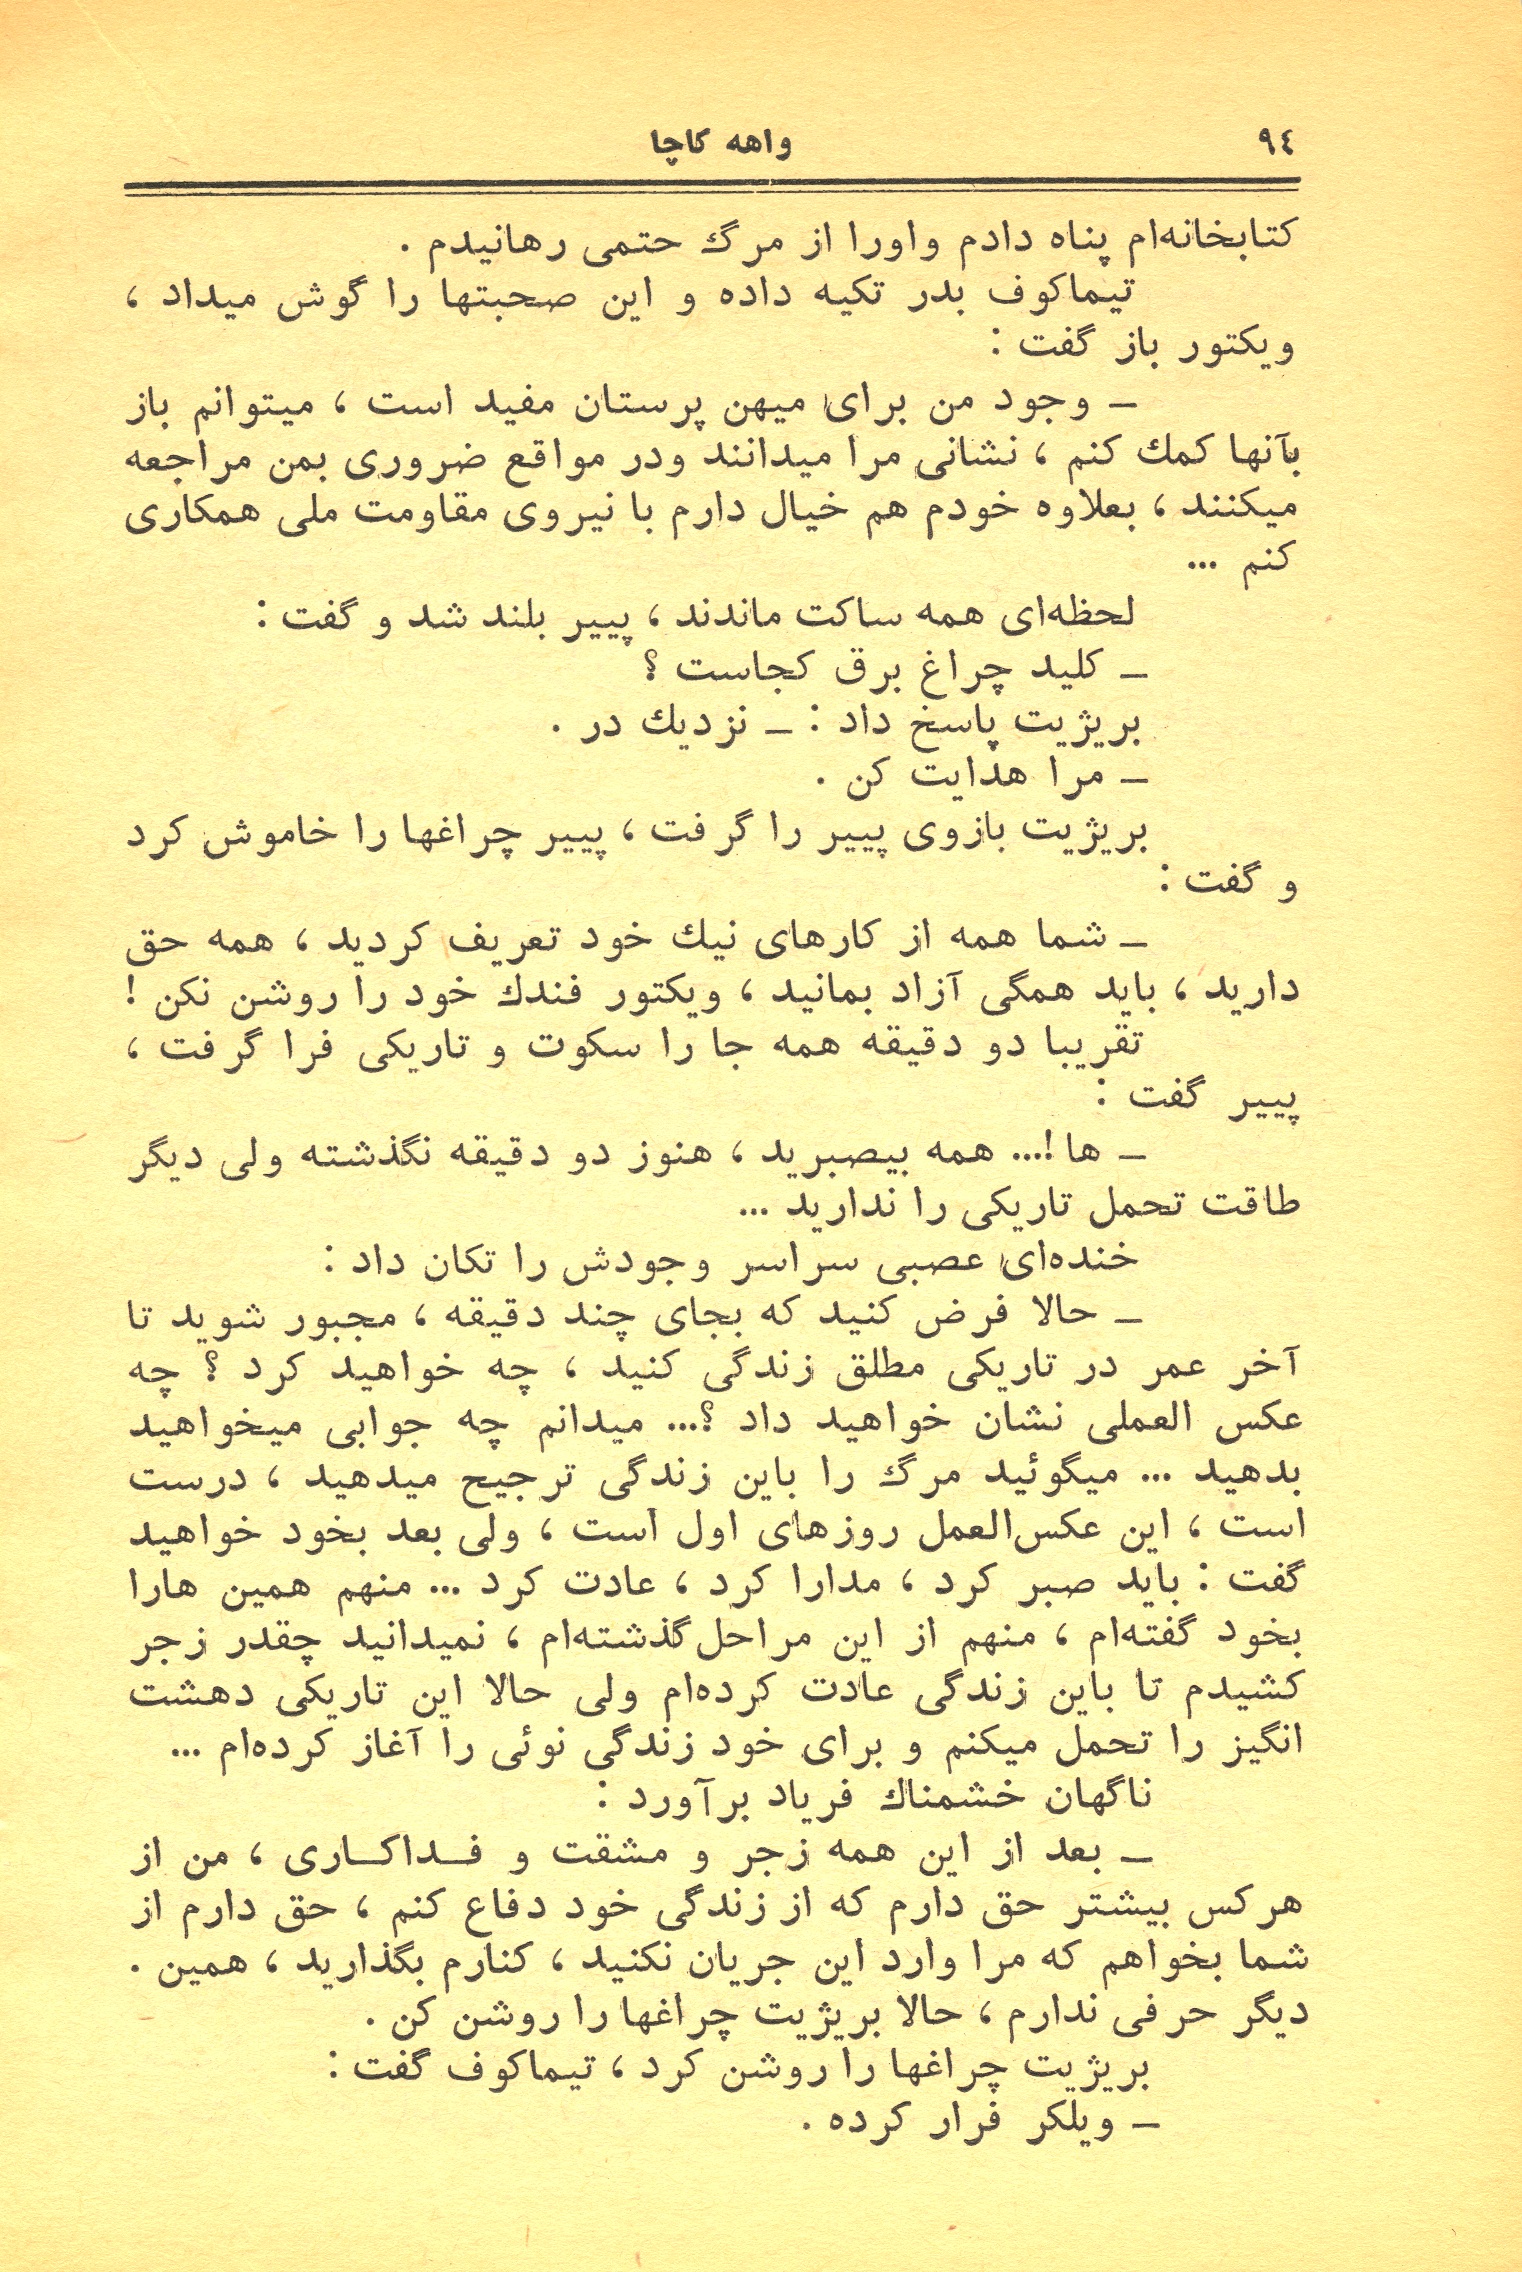 ٩٤
واهه كاچا
كتابخانه‌ام پناه دادم واورا از مرگ حتمی رهانیدم .
تیماكوف بدر تکیه داده و این صحبتها را گوش میداد ،
ویکتور باز گفت :
ــ وجود من برای میهن پرستان مفید است ، میتوانم باز
بآنها كمك كنم ، نشانی مرا میدانند ودر مواقع ضروری بمن مراجعه
میکنند ، بعلاوه خودم هم خیال دارم با نیروی مقاومت ملی همکاری
كنم ...
لحظه‌ای همه ساكت ماندند ، پییر بلند شد و گفت :
ــ كلید چراغ برق كجاست ؟
بریژیت پاسخ داد : ــ نزدیك در .
ــ مرا هدایت كن .
بریژیت بازوی پییر را گرفت ، پییر چراغها را خاموش كرد
و گفت :
ــ شما همه از كارهای نیك خود تعریف كردید ، همه حق
دارید ، باید همگی آزاد بمانید ، ویکتور فندك خود را روشن نکن !
تقریبا دو دقیقه همه جا را سکوت و تاریکی فرا گرفت ،
پییر گفت :
ــ ها !... همه بیصبرید ، هنوز دو دقیقه نگذشته ولی دیگر
طاقت تحمل تاریکی را ندارید ...
خنده‌ای عصبی سراسر وجودش را تکان داد :
ــ حالا فرض كنید كه بجای چند دقیقه ، مجبور شوید تا
آخر عمر در تاریکی مطلق زندگی كنید ، چه خواهید كرد ؟ چه
عکس العملی نشان خواهید داد ؟... میدانم چه جوابی میخواهید
بدهید ... میگوئید مرگ را باین زندگی ترجیح میدهید ، درست
است ، این عکس‌العمل روزهای اول است ، ولی بعد بخود خواهید
گفت : باید صبر كرد ، مدارا كرد ، عادت كرد ... منهم همین هارا
بخود گفته‌ام ، منهم از این مراحل گذشته‌ام ، نمیدانید چقدر زجر
كشیدم تا باین زندگی عادت كرده‌ام ولی حالا این تاریکی دهشت
انگیز را تحمل میکنم و برای خود زندگی نوئی را آغاز كرده‌ام ...
ناگهان خشمناك فریاد برآورد :
ــ بعد از این همه زجر و مشقت و فــداكــاری ، من از
هركس بیشتر حق دارم كه از زندگی خود دفاع كنم ، حق دارم از
شما بخواهم كه مرا وارد این جریان نکنید ، كنارم بگذارید ، همین .
دیگر حرفی ندارم ، حالا بریژیت چراغها را روشن كن .
بریژیت چراغها را روشن كرد ، تیماكوف گفت :
ــ ویلکر فرار كرده .